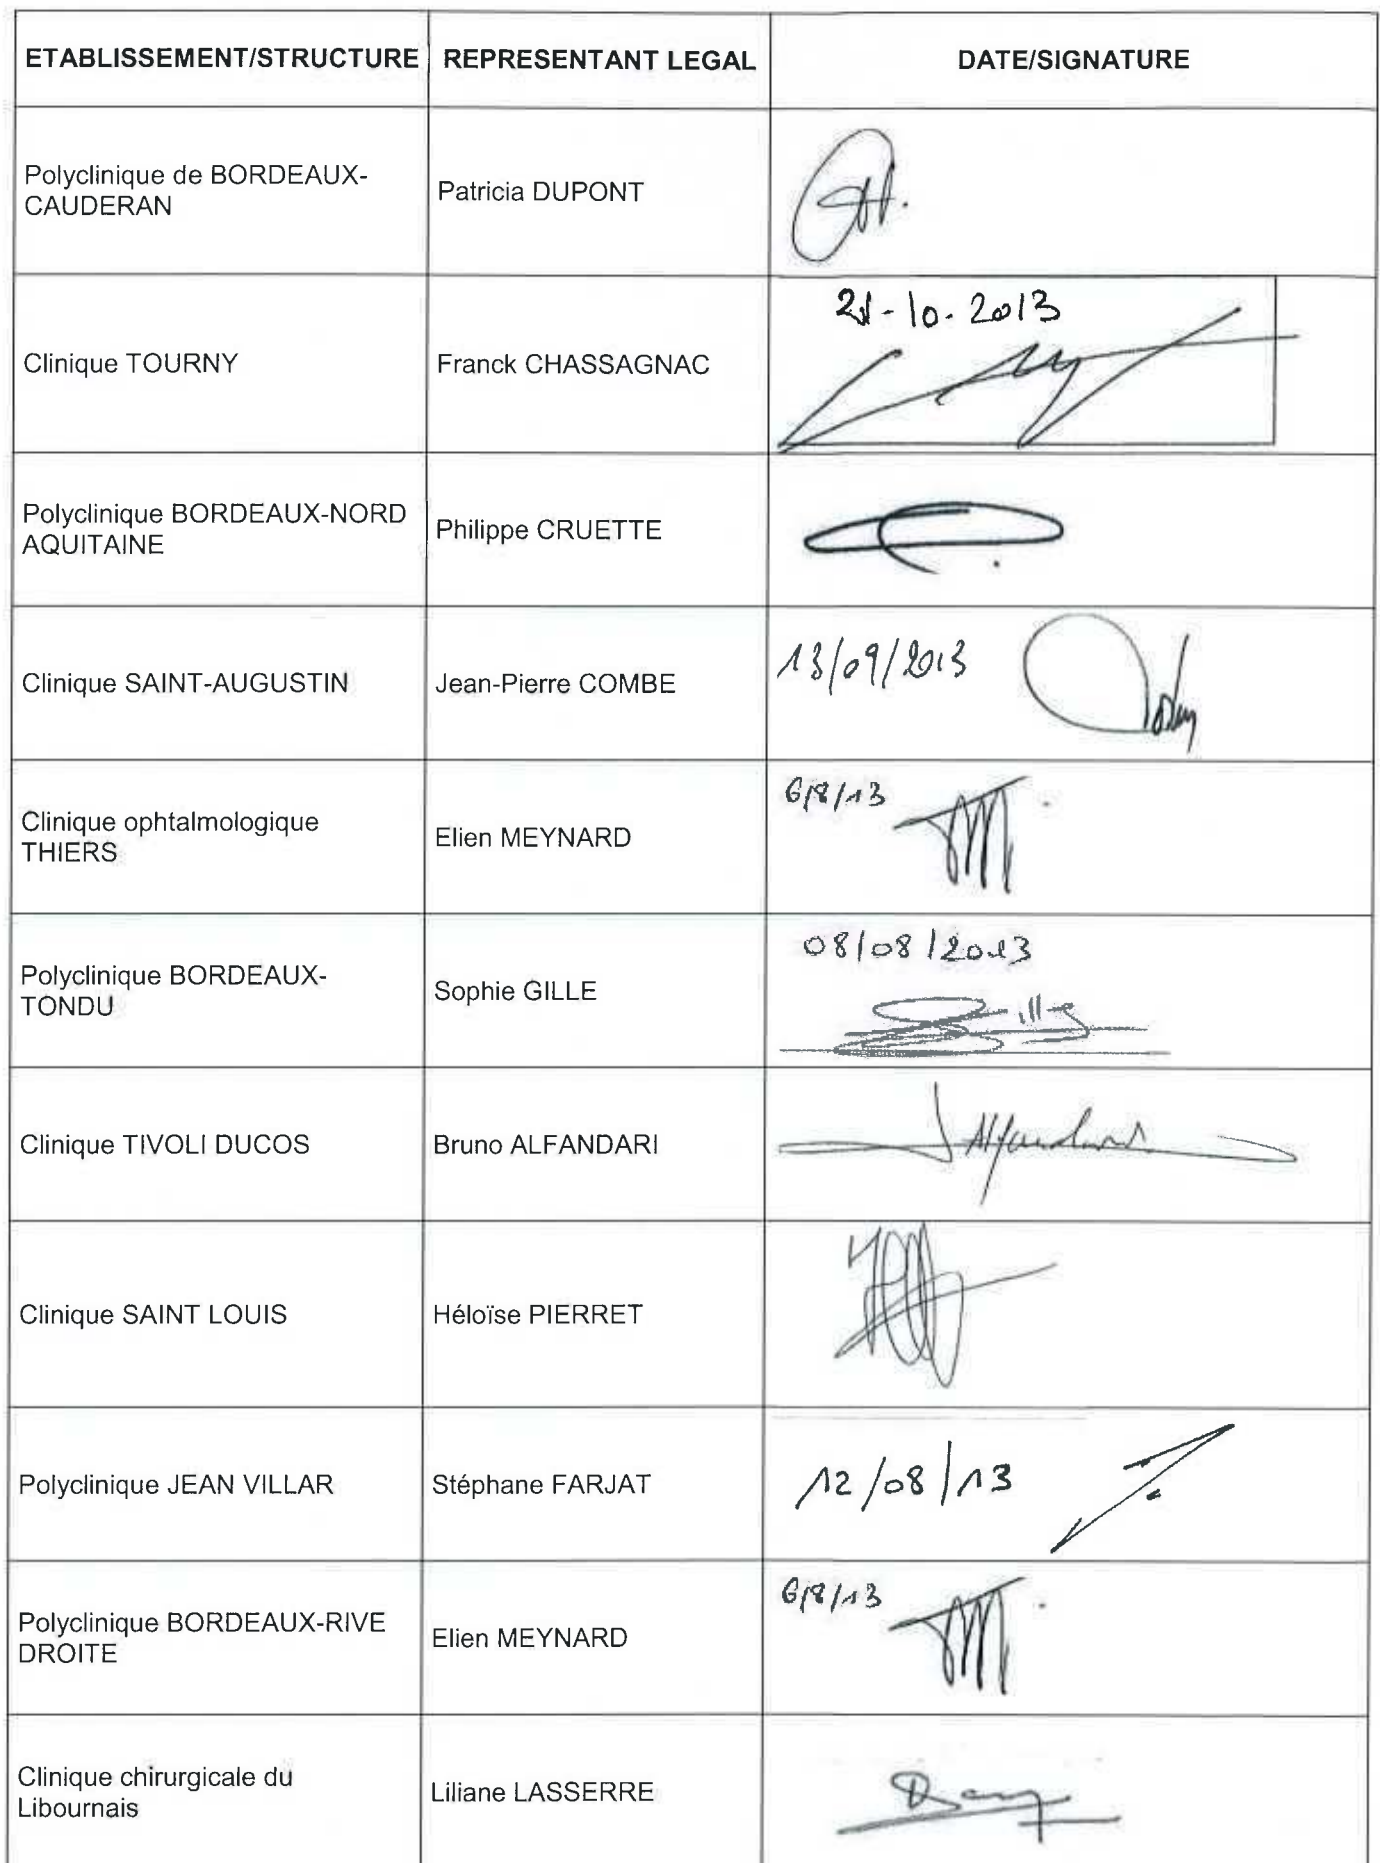 ETABLISSEMENT/STRUCTURE REPRESENTANT LEGAL DATE/SIGNATURE
Polyclinique de BORDEAUX-
CAUDERAN
Patricia DUPONT
21-10-2013
Clinique TOURNY
Franck CHASSAGNAC
Polyclinique BORDEAUX-NORD
AQUITAINE
Philippe CRUETTE
Clinique SAINT-AUGUSTIN
Jean-Pierre COMBE
13/09/2013
Clinique ophtalmologique
THIERS
Elien MEYNARD
6/8/13
Polyclinique BORDEAUX-
TONDU
Sophie GILLE
08/08/2013
Gille
Clinique TIVOLI DUCOS
Bruno ALFANDARI
Alfandari
Clinique SAINT LOUIS
Héloïse PIERRET
Polyclinique JEAN VILLAR
Stéphane FARJAT
12/08/13
Polyclinique BORDEAUX-RIVE
DROITE
Elien MEYNARD
6/8/13
Clinique chirurgicale du
Libournais
Liliane LASSERRE